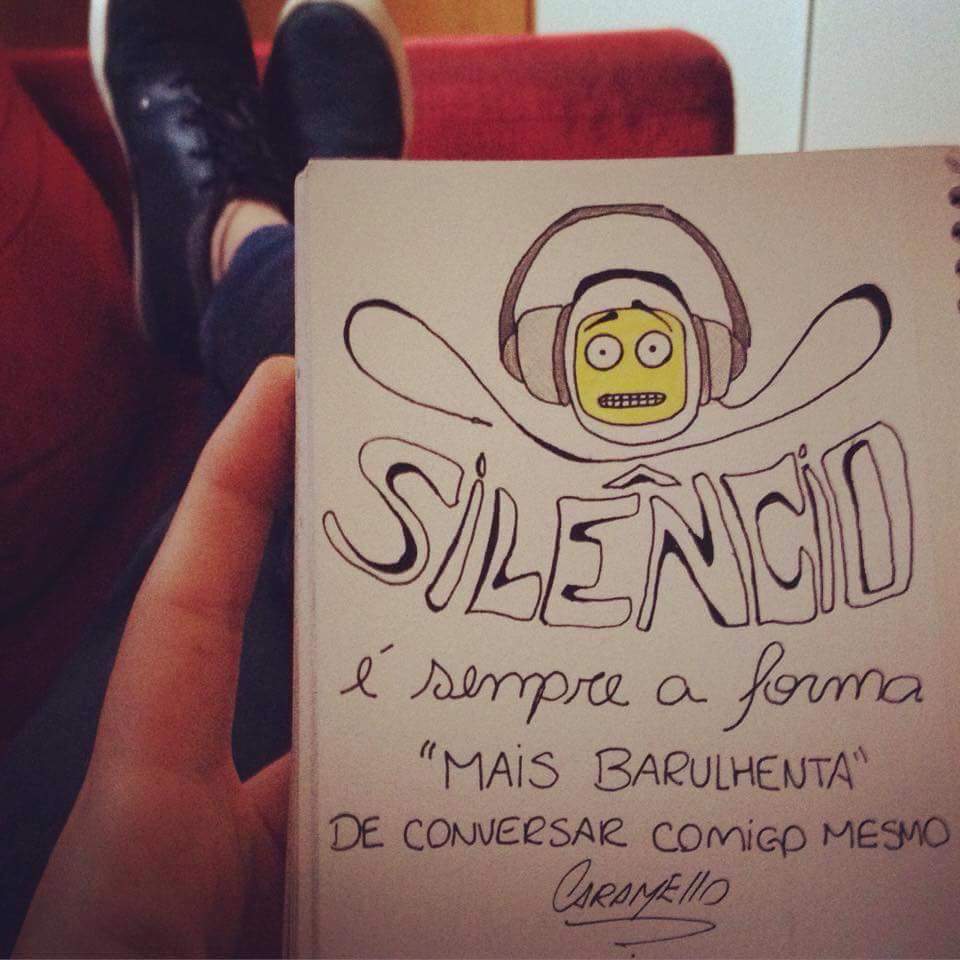 SILÊNCIO
é sempre a forma
"MAIS BARULHENTA"
DE CONVERSAR COMIGO MESMO
CARAMELLO